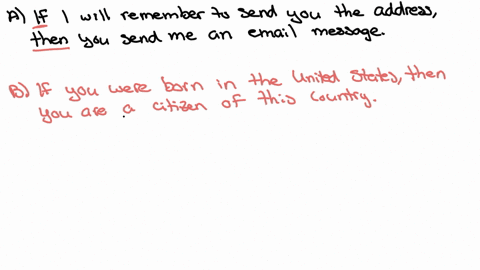 A) If I will remember to send you the address,
then you send me an email message.
B) If you were born in the United States, then
you are a citizen of this country.